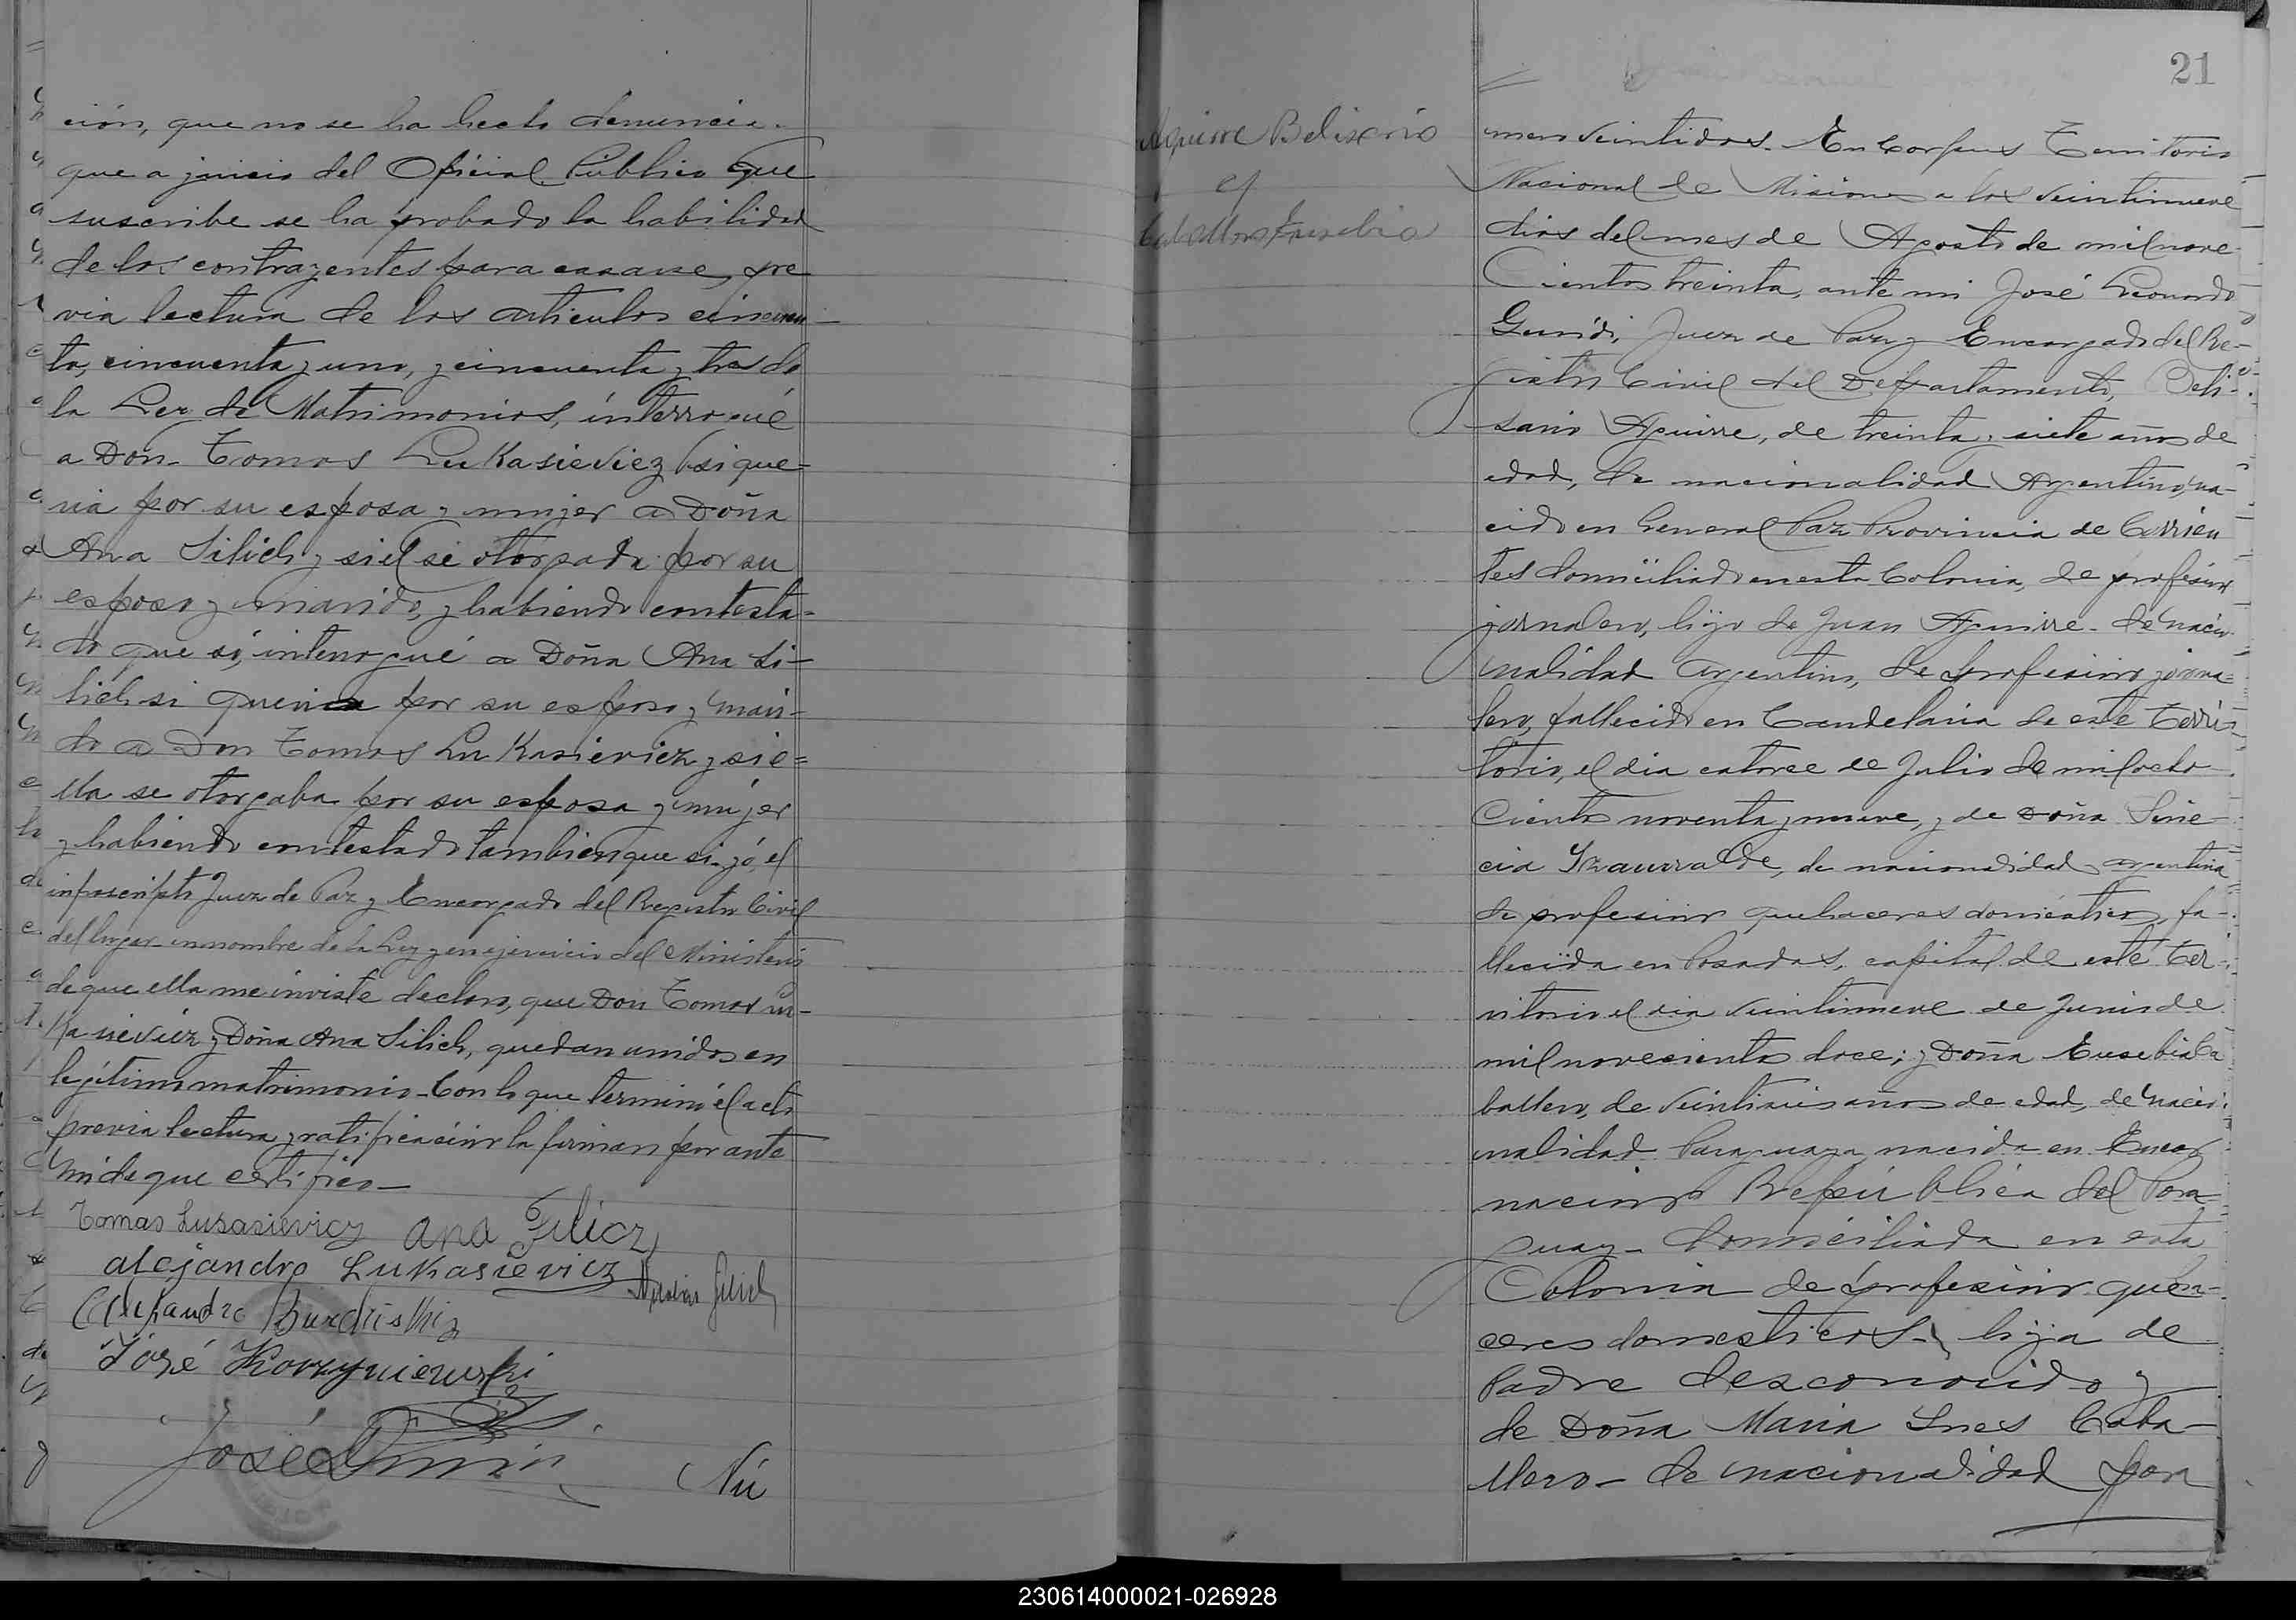 ción, que no se ha hecho denuncia.
que a juicio del Oficial Público que
suscribe se ha probado la habilidad
de los contrayentes para casarse, pre
via lectura de los articulos cincuen-
ta, cincuenta y uno, y cincuenta y tres de
la Ley de Matrimonios, interrogué
a Don Tomas Lukasieviez si que=
ria por su esposa y mujer a Doña
Ana Silich y si el se otorgada por su
esposo y marido, y habiendo contesta=
do que si, interrogué a Doña Ana Si-
lich si queria por su esposo y mari-
do a Don Tomas Lukasieviez y si e=
lla se otorgaba por su esposa y mujer
y habiendo contestado tambien que si, yó, el
infrascripto Juez de Paz y Encargado del Registro Civil
del lugar en nombre de la Ley y en ejercicio del Ministerio
de que ella me inviste declaro, que Don Tomas Lu-
kasieviez y Doña Ana Silich, quedan unidos en
legítimo matrimonio. Con lo que terminó el acto
previa lectura y ratificación la firman por ante
mi de que certifico—
Tomas Lusasievicz Ana Filicz
alejandro Lukasievicz
José
José
Nú
21
Aguirre Belisario
c/
Caballero Eusebia
mero veintidos. En Corpus Territorio
Nacional de Misiones a los veintinueve
dias del mes de Agosto de mil nove
Cientos treinta, ante mi José Leonardo
Juez de Paz y Encargado del Re-
gistro Civil del Departamento, Beli-
sario Aguirre, de treinta y siete años de
edad, de nacionalidad Argentino, na-
cido en General Paz Provincia de Corrien
tes domiciliado en esta Colonia, de profesión
jornalero, hijo de Juan Aguirre de nacio
nalidad argentino, de profesión jorna=
lero, fallecido en Candelaria de este Terri=
torio, el dia catorce de Julio de mil ocho
Cientos noventa y nueve, y de Doña
Yzaurralde, de nacionalidad argentina
de profesión quehaceres domésticos, fa-
llecida en Posadas, capital de este Ter-
ritorio el dia veintinueve de Junio de
mil novecientos doce; y Doña Eusebia Ca
ballero, de veintiseis años de edad, de nacio
nalidad Paraguaya nacida en Encar
nacion República del Para=
guay- domiciliada en esta
Colonia de profesión queha-
ceres domesticos- hija de
Padre desconocido y
de Doña Maria Ines Caba-
llero- de nacionalidad para
230614000021-026928